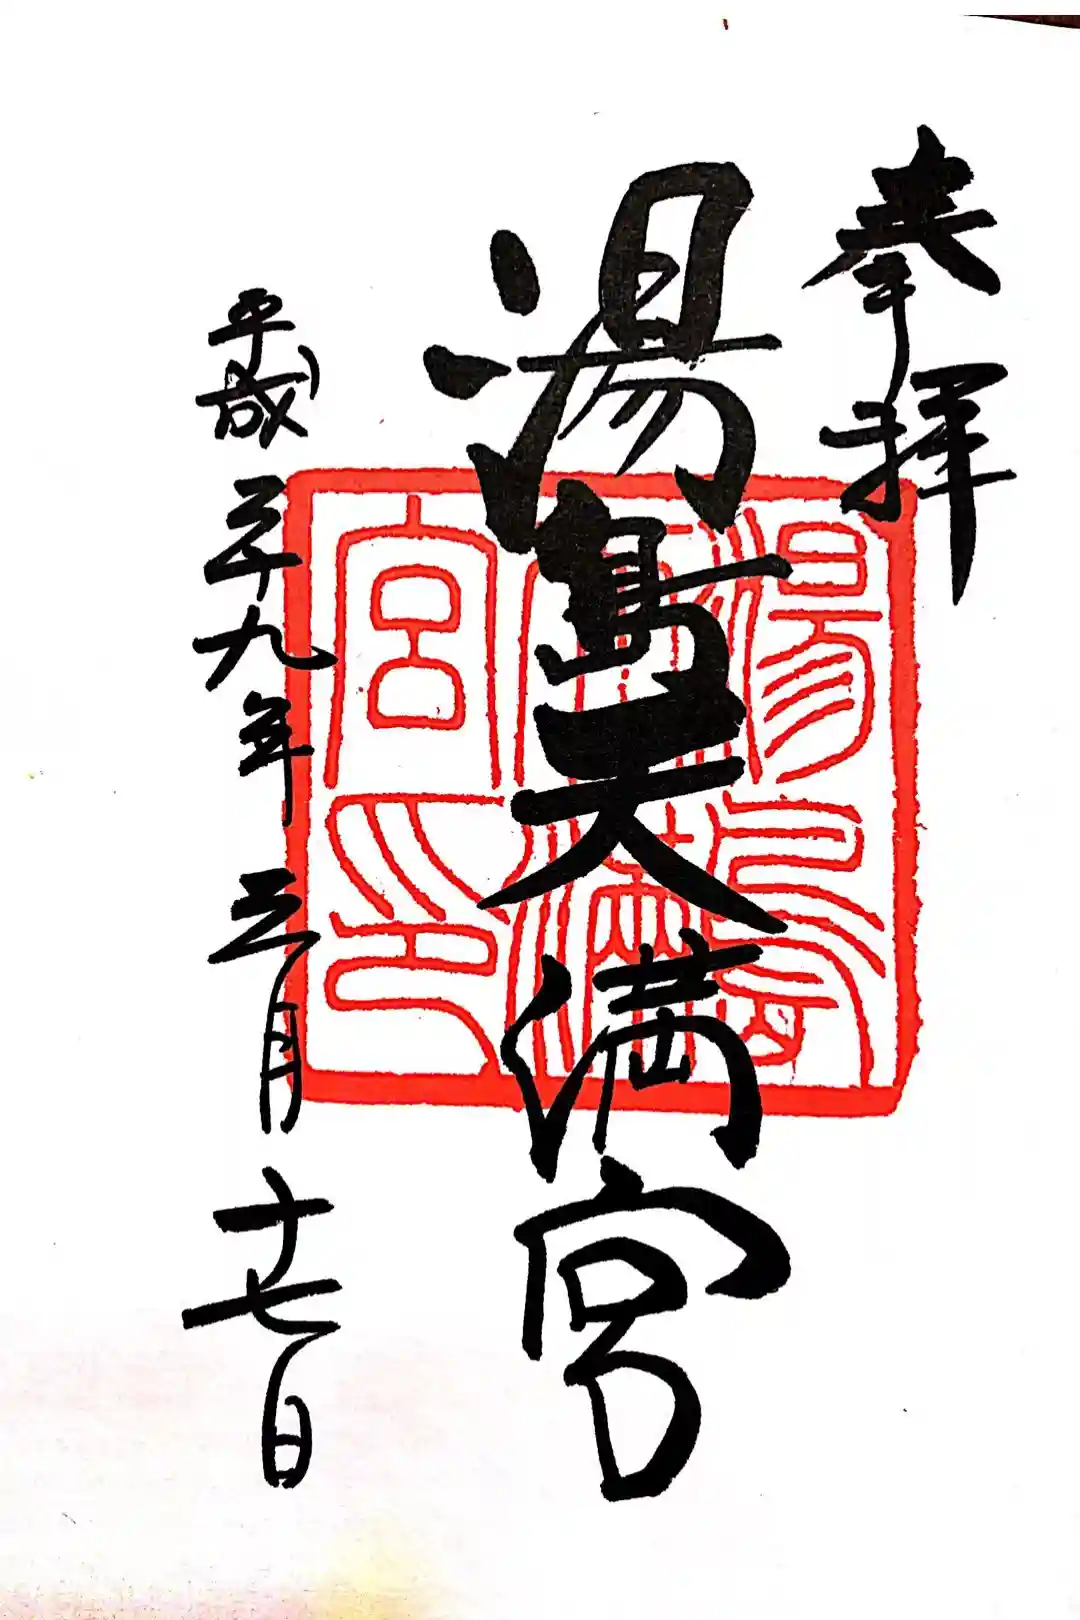 奉拝
湯島天満宮
平成二十九年三月十七日
湯島
天満
宮印